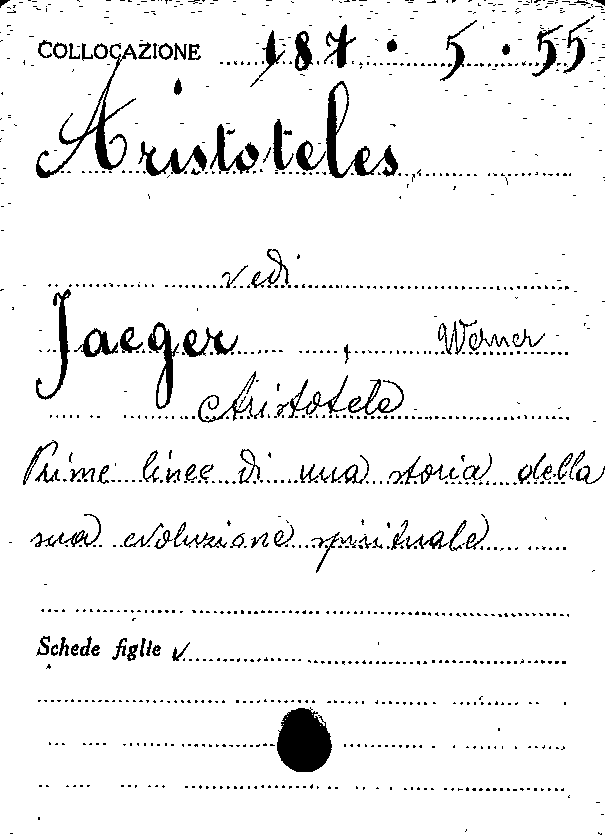 COLLOCAZIONE 187 . 5 . 55
Aristoteles
vedi
Jaeger , Werner
Aristotele
Prime linee di una storia della
sua evoluzione spirituale
Schede figlie √